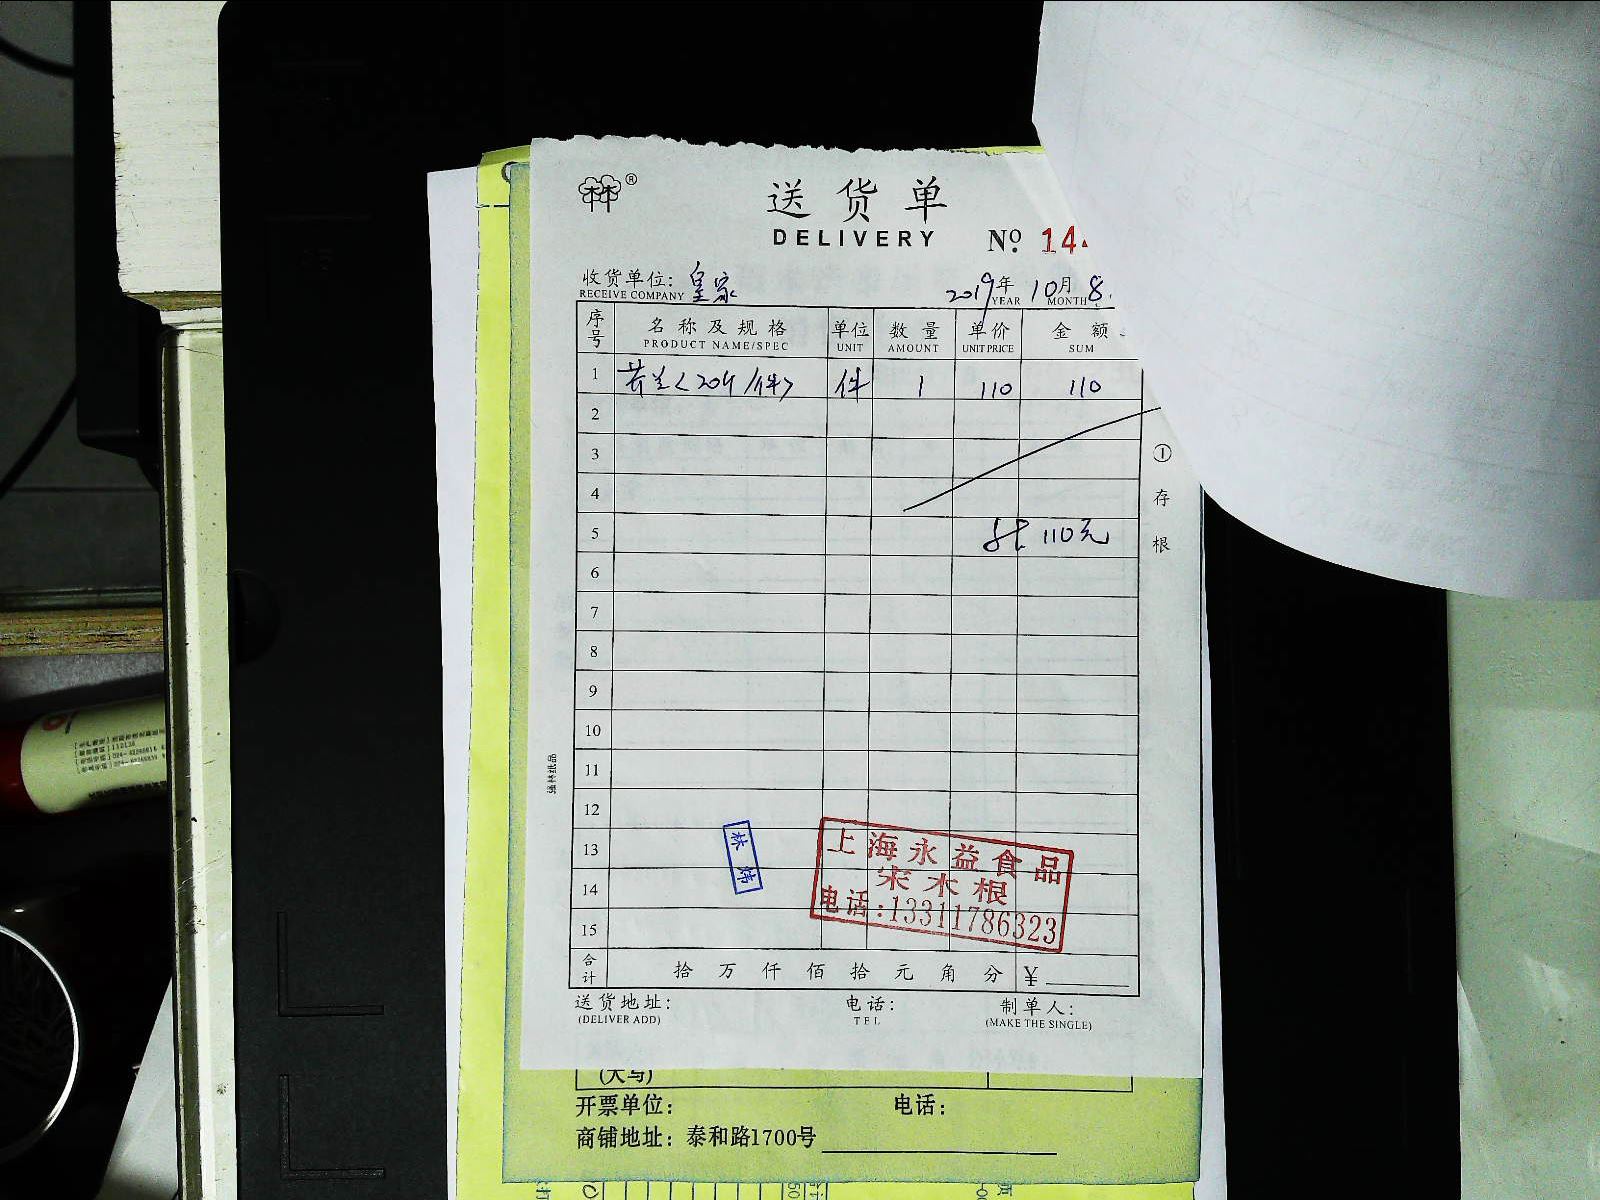 林林®
送货单
DELIVERY
№ 14
收货单位: 皇家
RECEIVE COMPANY
2019年 10月 8
YEAR MONTH
序号 名称及规格 单位 数量 单价 金额
PRODUCT NAME/SPEC UNIT AMOUNT UNIT PRICE SUM
1 芥兰<20斤/件> 件 1 110 110
2
3
4
5 110元
6
7
8
9
10
11
12
13
14
15
① 存根
强林纸品
林炜
上海永益食品
宋木根
电话:13311786323
合计 拾 万 仟 佰 拾 元 角 分 ¥
送货地址: 电话: 制单人:
(DELIVER ADD) TEL (MAKE THE SINGLE)
(大写)
开票单位: 电话:
商铺地址: 泰和路1700号